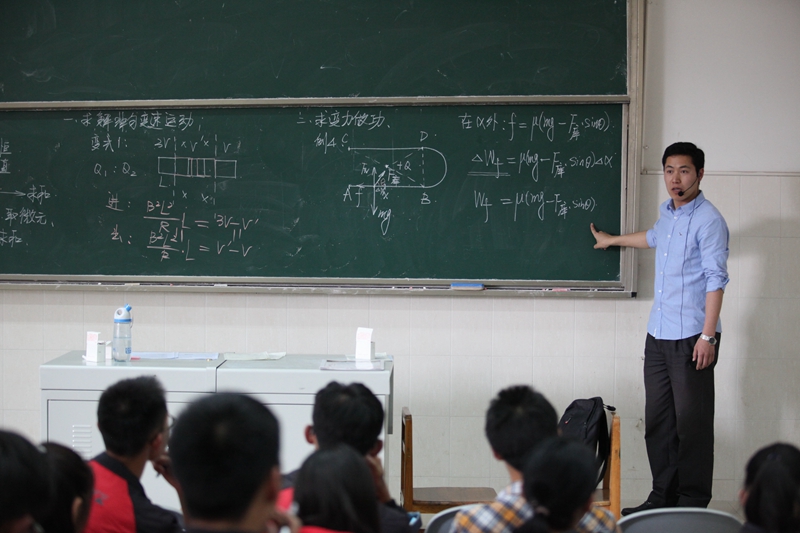 一、求解非匀变速运动
变式1:
3V V× V
Q₁:Q₂
L
进:
B²L²/R L = 3V-V'
出:
B²L²/R L = V'-V
求和
取微元、
求和、
二、求变力做功、
例4 C D
N
+Q
F库
A f α B
mg
在α处:f=μ(mg-F库·sinθ)
ΔWf=μ(mg-F库·sinθ)Δα
Wf=μ(mg-F库·sinθ)